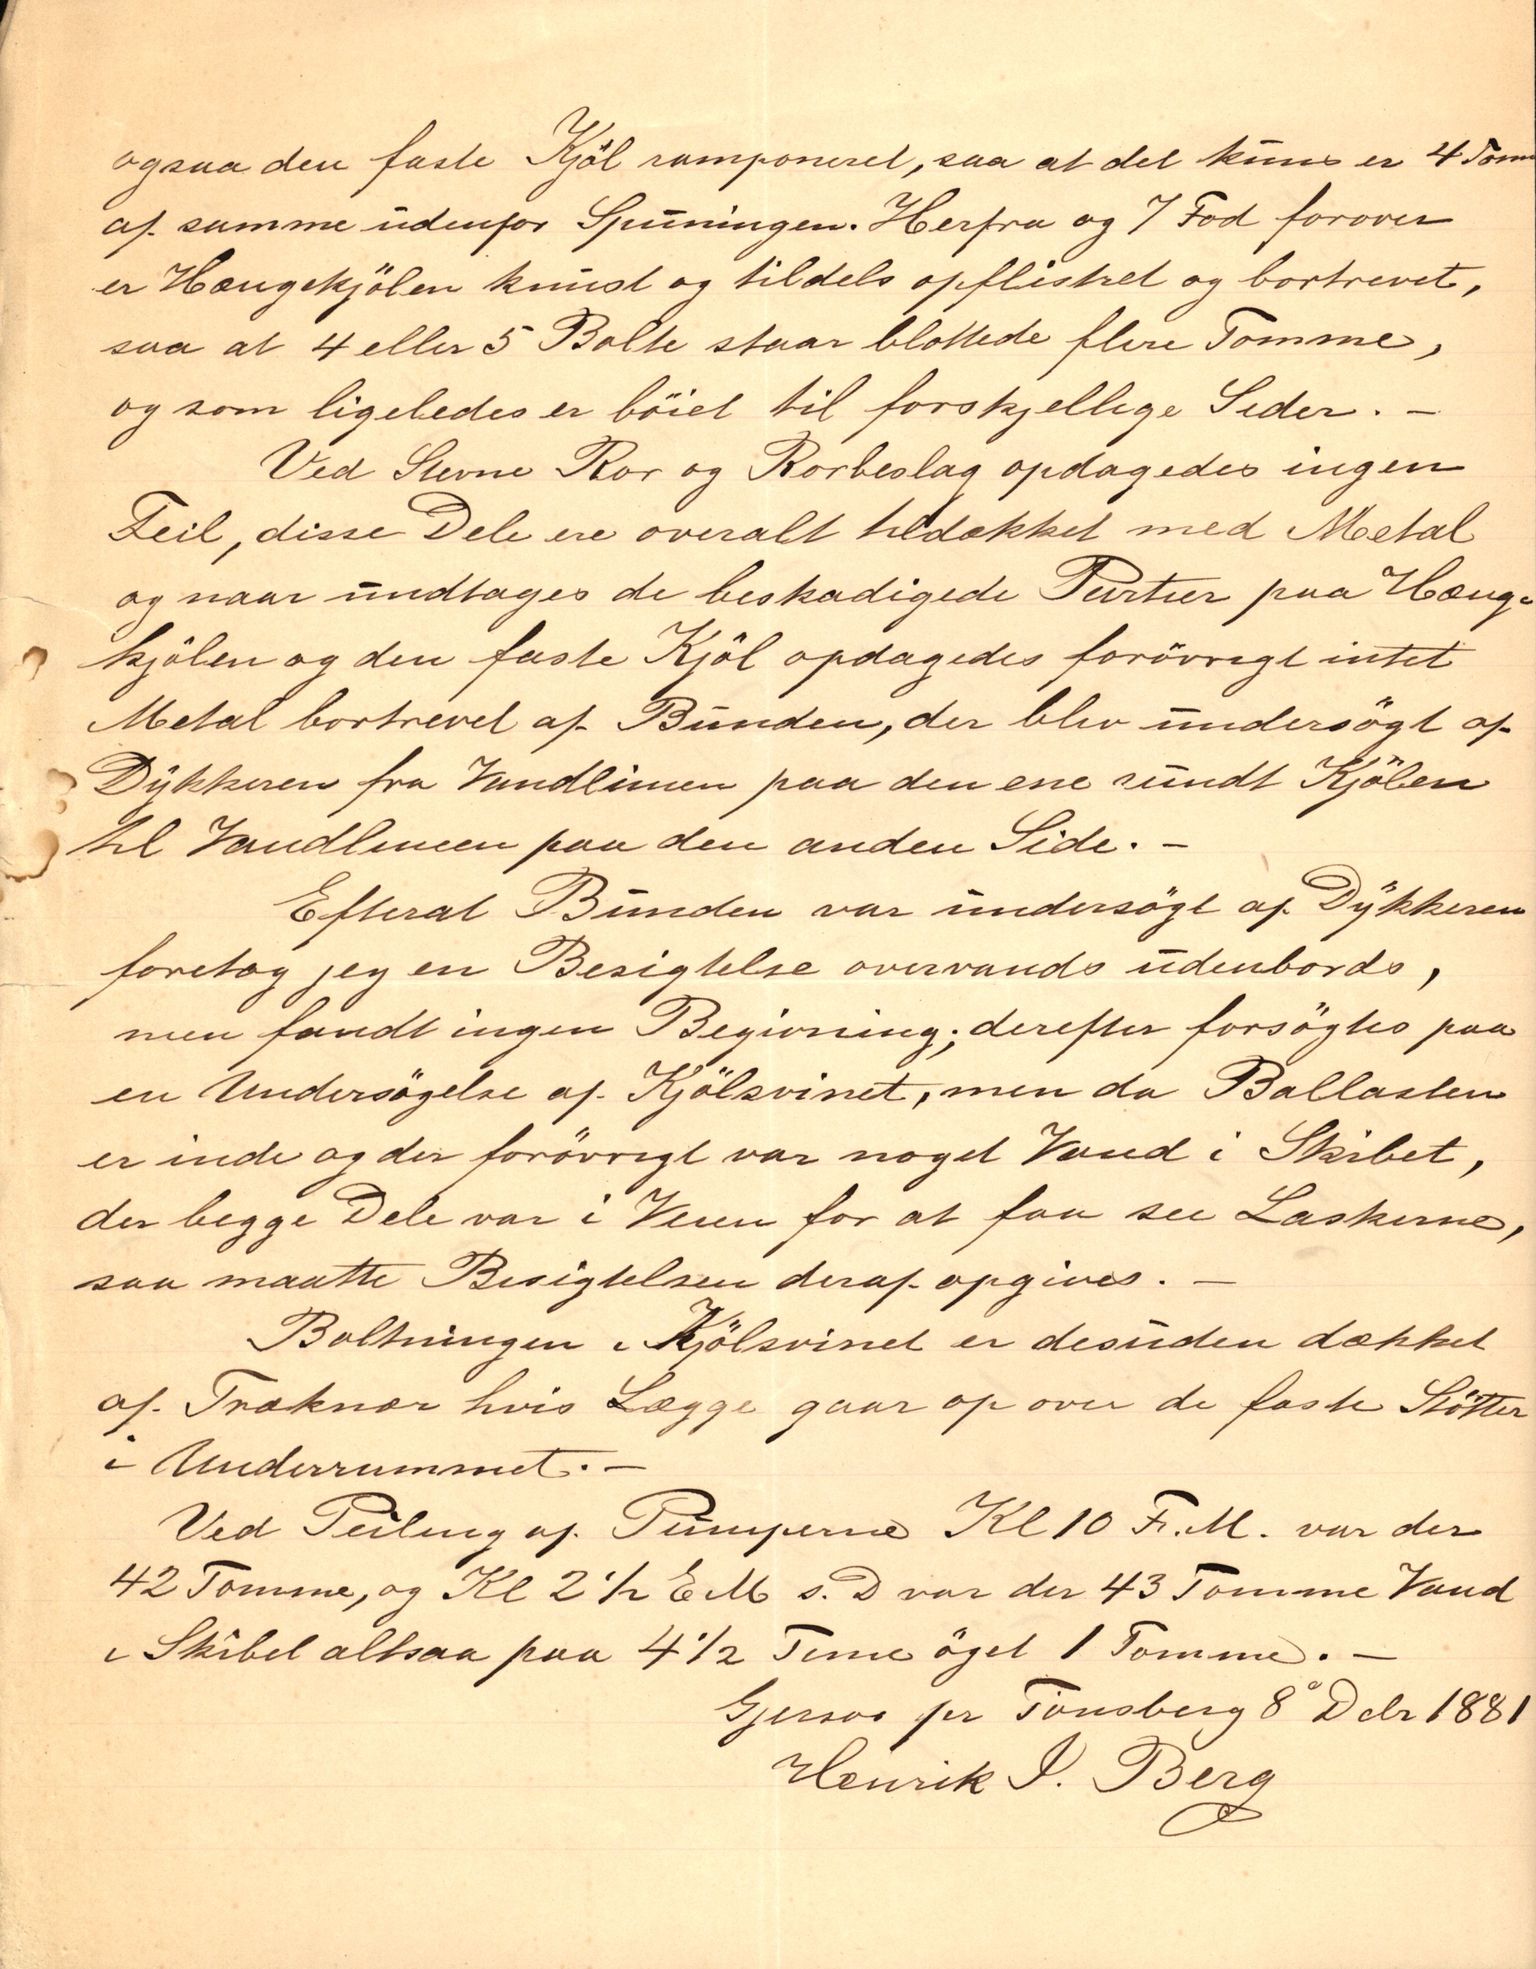 ogsaa den faste Kjöl ramponeret, saa at det kuns er 4 Tom
af samme udenfor Spuningen. Herfra og 7 Fod forover
er Hængekjölen knust og tildels opflistret og bortrevet,
saa at 4 eller 5 Bolte staar blottede flere Tomme,
og som ligeledes er böiet til forskjellige Sider. —
Ved Stevne Ror og Rorbeslag opdagedes ingen
Feil, disse Dele ere overalt tildækket med Metal
og naar undtages de beskadigede Partier paa Hæng-
kjölen og den faste Kjöl opdagedes forövrigt intet
Metal bortrevet af Bunden, der blev undersögt af
Dykkeren fra Vandlinien paa den ene rundt Kjölen
til Vandlinien paa den anden Side. —
Efterat Bunden var undersögt af Dykkeren
foretog jeg en Besigtelse overvands udenbords,
men fandt ingen Begivning; derefter forsögtes paa
en Undersögelse af Kjölsvinet, men da Ballasten
er inde og der forövrigt var noget Vand i Skibet,
der begge Dele var i Veien for at faa see Laskerne,
saa maatte Besigtelsen deraf opgives. —
Boltningen i Kjölsvinet er desuden dækket
af Træknær hvis Lægge gaar op over de faste Stötter
i Underrummet. —
Ved Peiling af Pumperne Kl 10 F.M. var der
42 Tomme, og Kl 2 1/2 E M s. D var der 43 Tomme Vand
i Skibet altsaa paa 4 1/2 Time öget 1 Tomme. —
Gjersøe pr Tönsberg 8 Dcbr 1881
Henrik J. Berg